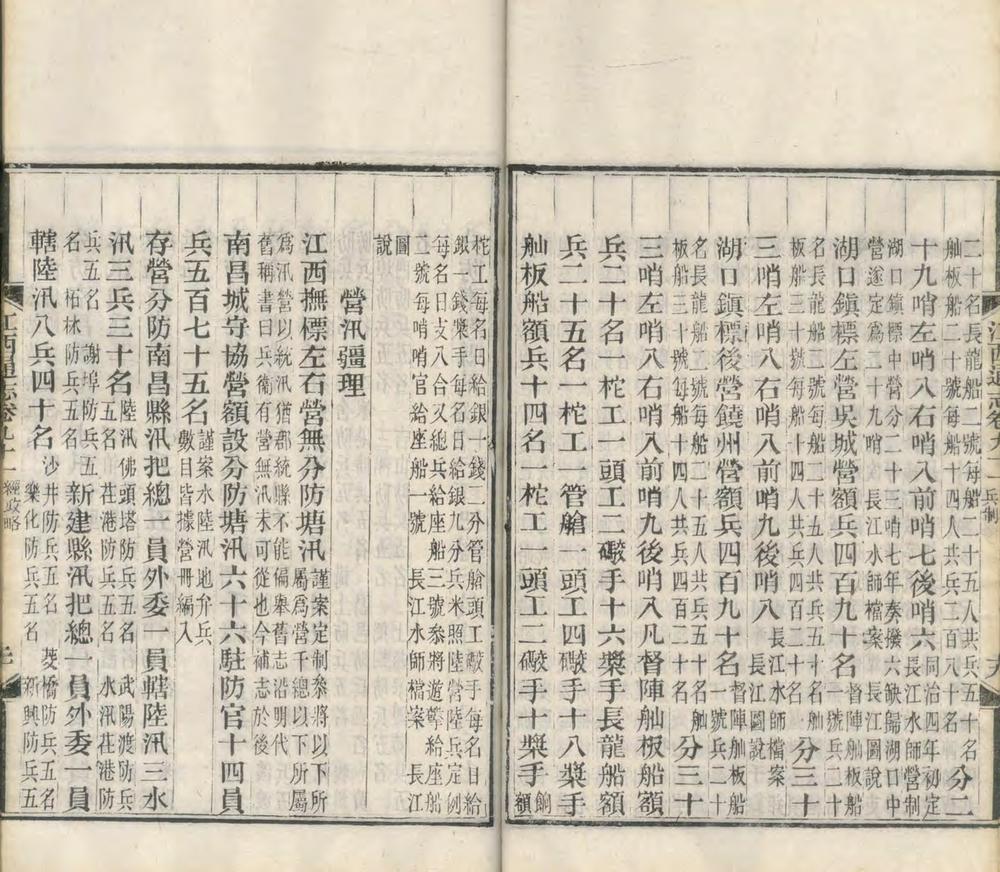 二十名長龍船二號每船二十五人共兵五十名
舢板船二十號每船十四人共兵二百八十名
分二
十九哨左哨八右哨八前哨七後哨六
同治四年初定
長江水師營制
湖口鎮標中營分二十三哨七年奏撥六缺歸湖口中
營遂定爲二十九哨 長江水師檔案 長江圖說
湖口鎮標左營吳城營額兵四百九十名
督陣舢板船
一號兵二十
名長龍船二號每船二十五人共兵五十名舢
板船三十號每船十四人共兵四百二十名
分三十
三哨左哨八右哨八前哨九後哨八
長江水師檔案
長江圖說
湖口鎮標後營饒州營額兵四百九十名
督陣舢板船
一號兵二十
名長龍船二號每船二十五人共兵五十名舢
板船三十號每船十四人共兵四百二十名
分三十
三哨左哨八右哨八前哨九後哨八凡督陣舢板船額
兵二十名一柁工一頭工二礮手十六槳手長龍船額
兵二十五名一柁工一管艙一頭工四礮手十八槳手
舢板船額兵十四名一柁工一頭工二礮手十槳手
餉
額
柁工每名日給銀一錢二分管艙頭工礮手每名日給
銀一錢槳手每名日給銀九分兵米照陸營陸兵定例
每名日支八合又總兵給座船三號參將遊擊給座船
二號每哨哨官給座船一號 長江水師檔案 長江
圖
說
營汛疆理
江西撫標左右營無分防塘汛
謹案定制參將以下所
屬爲營千總以下所屬
爲汛營以統汛猶郡統縣不能偏舉舊志沿明代
舊稱書曰兵衛有營無汛未可從也今補志於後
南昌城守協營額設分防塘汛六十六駐防官十四員
兵五百七十五名
謹案水陸汛地弁兵
數目皆據營冊編入
存營分防南昌縣汛把總二員外委一員轄陸汛三水
汛三兵三十名
陸汛佛頭塔防兵五名武陽渡防兵
五名 荏港防兵五名 水汛荏港防
兵五名 謝埠防兵五
名 柘林防兵五名
新建縣汛把總一員外委一員
轄陸汛八兵四十名
沙井防兵五名 菱橋防兵五名
樂化防兵五名 新興防兵五